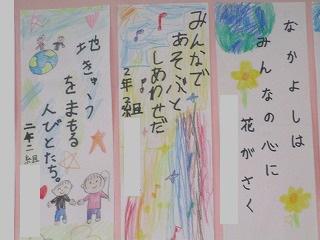 なかよしは
みんなの心に
花がさく
みんなで
あそぶと
しあわせだ
2年2組
地きゅう
をまもる
人びとたち。
二年二組